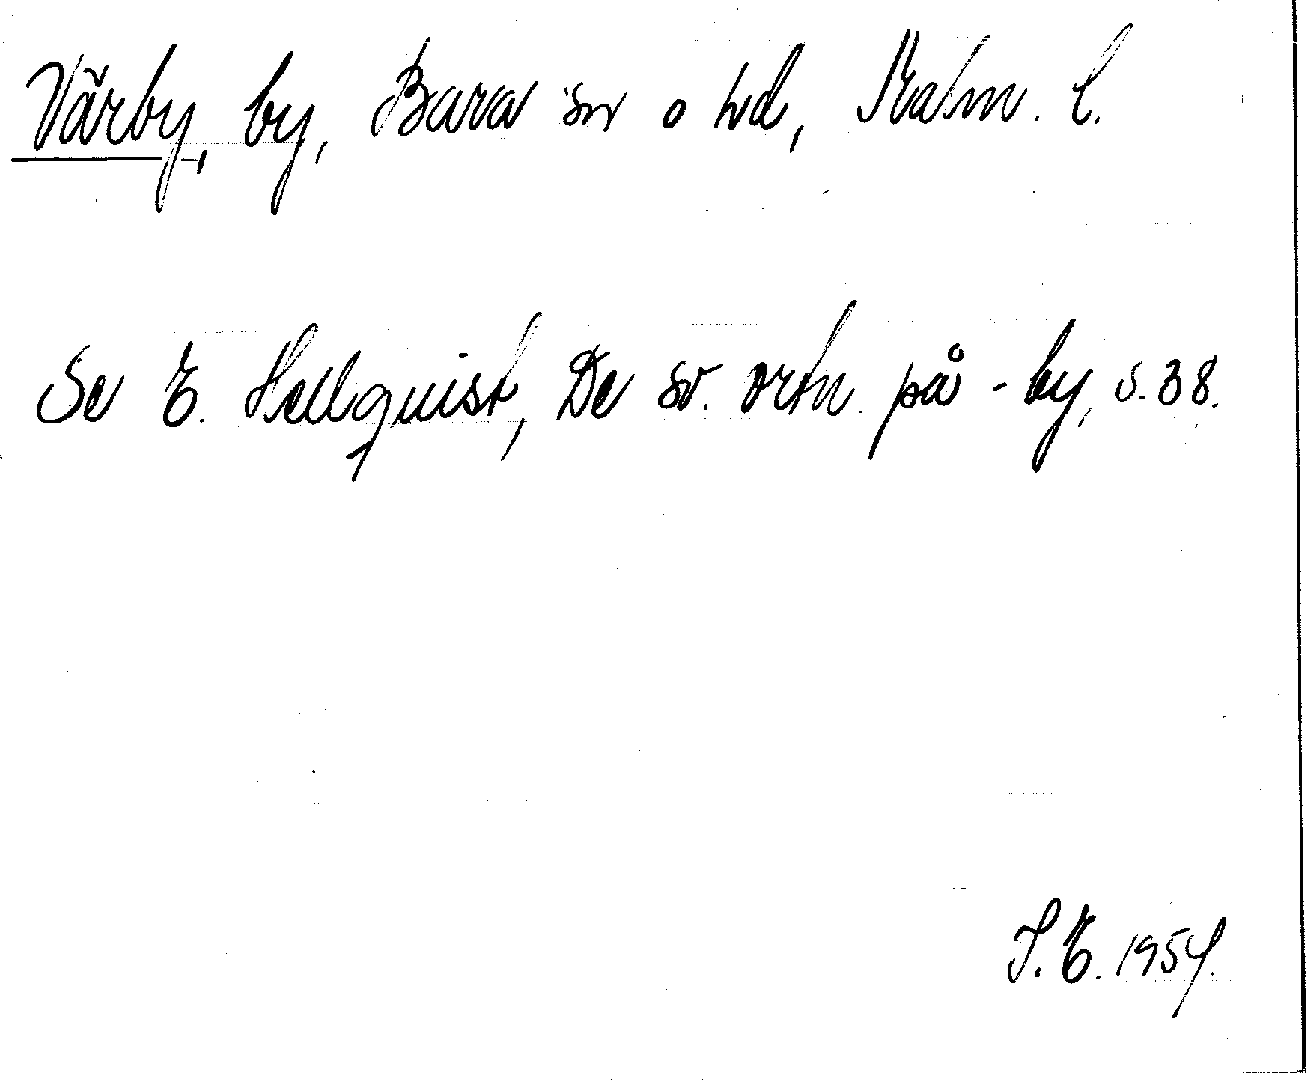 Värby, by, Bara sn o hd, Malm. l.
Se E. Hellquist, De sv. ortn. på -by, s. 38.
S. E. 1954.